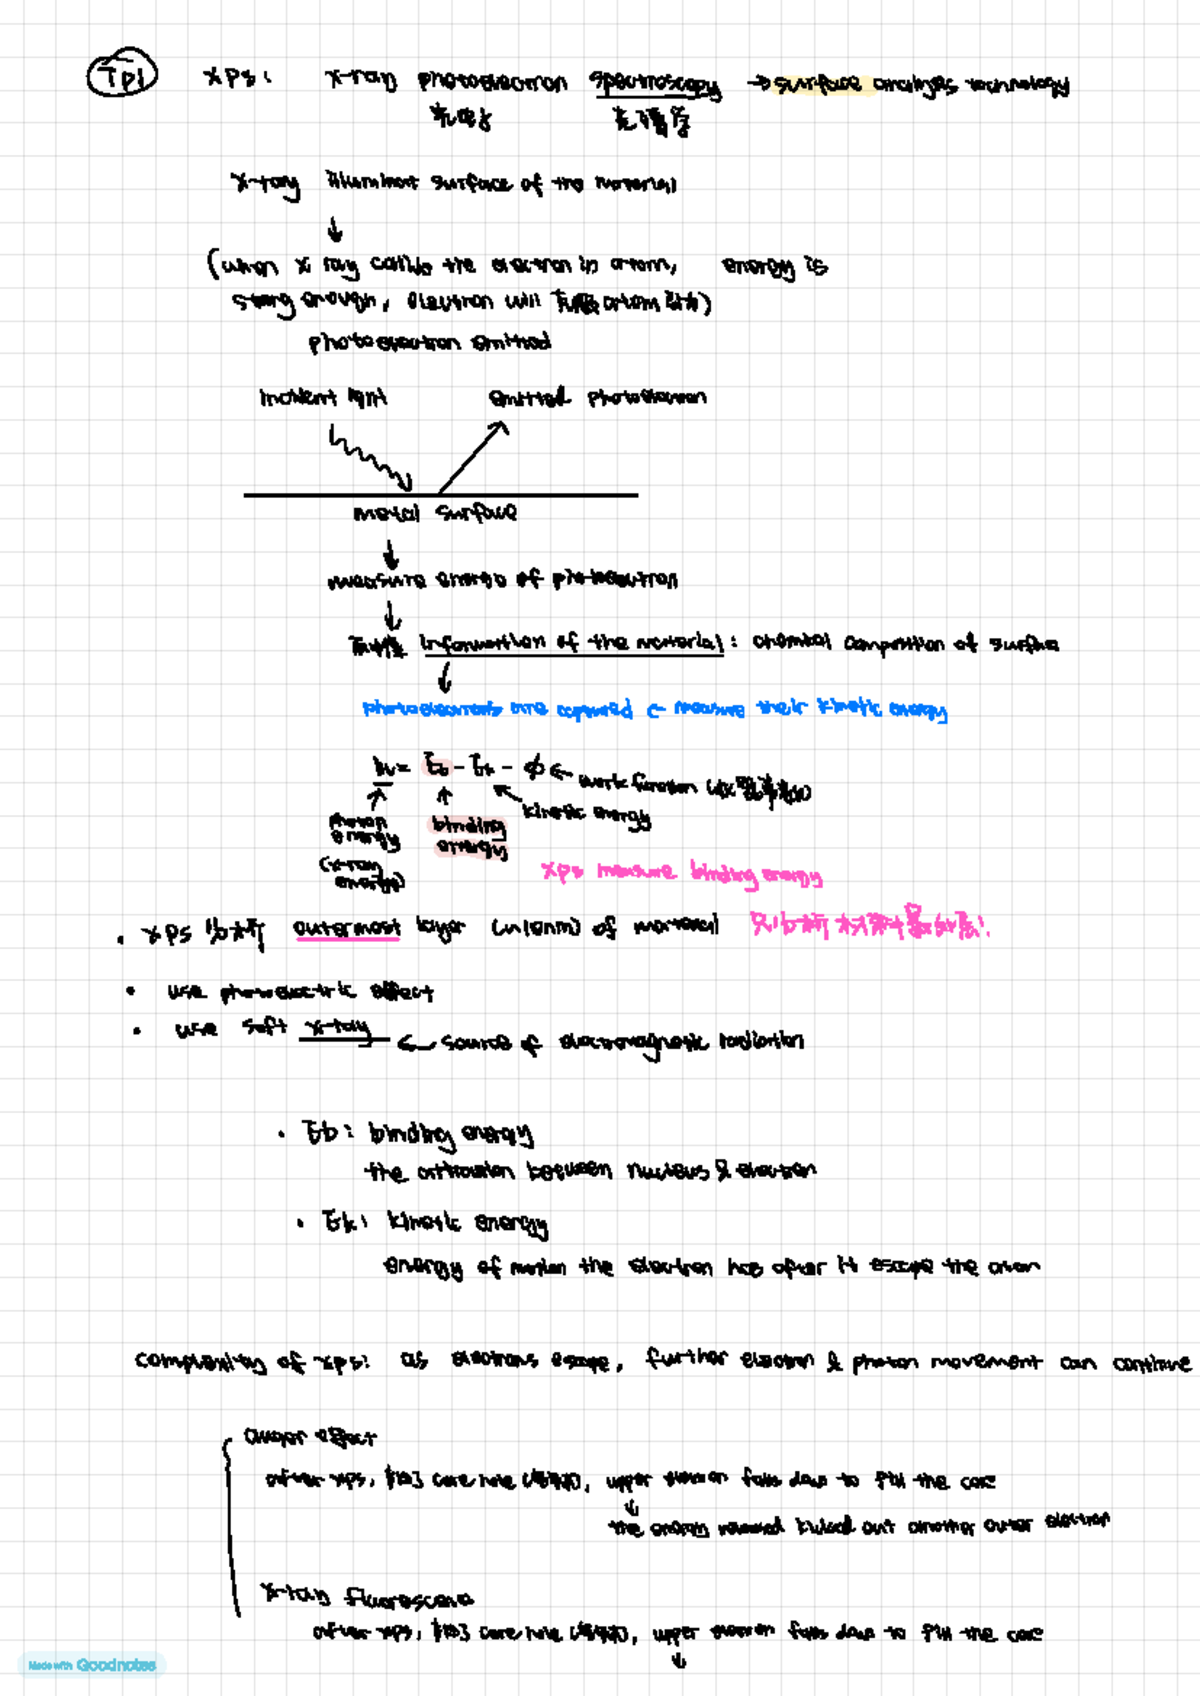 TP1
XPS: X-ray photoelectron spectroscopy → surface analyses technology
光電子 光譜學
X-ray illuminant surface of the material
↓
(when X ray collide the electron in atom, energy is
strong enough, electron will atom
photoelectron emitted
incident light emitted photoelectron
metal surface
↓
measure energy of photoelectron
↓
information of the material: chemical composition of surface
↓
photoelectrons are captured & measure their kinetic energy
hν = Eb - Ek - Φ ← work function
photon energy (x-ray energy)
binding energy
kinetic energy
xps measure binding energy
• XPS 分析 outermost layer (~10nm) of material 只分析材料最外層!
• use photoelectric effect
• use soft x-ray ← source of electromagnetic radiation
• Eb: binding energy
the attraction between nucleus & electron
• Ek: kinetic energy
energy of motion the electron has after it escape the atom
complexity of xps: as electrons escape, further electron & photon movement can continue
auger effect
after xps, core hole, upper electron falls down to fill the core
↓
the energy released kicked out another outer electron
X-ray fluorescence
after xps, core hole, upper electron falls down to fill the core
↓
Made with Goodnotes